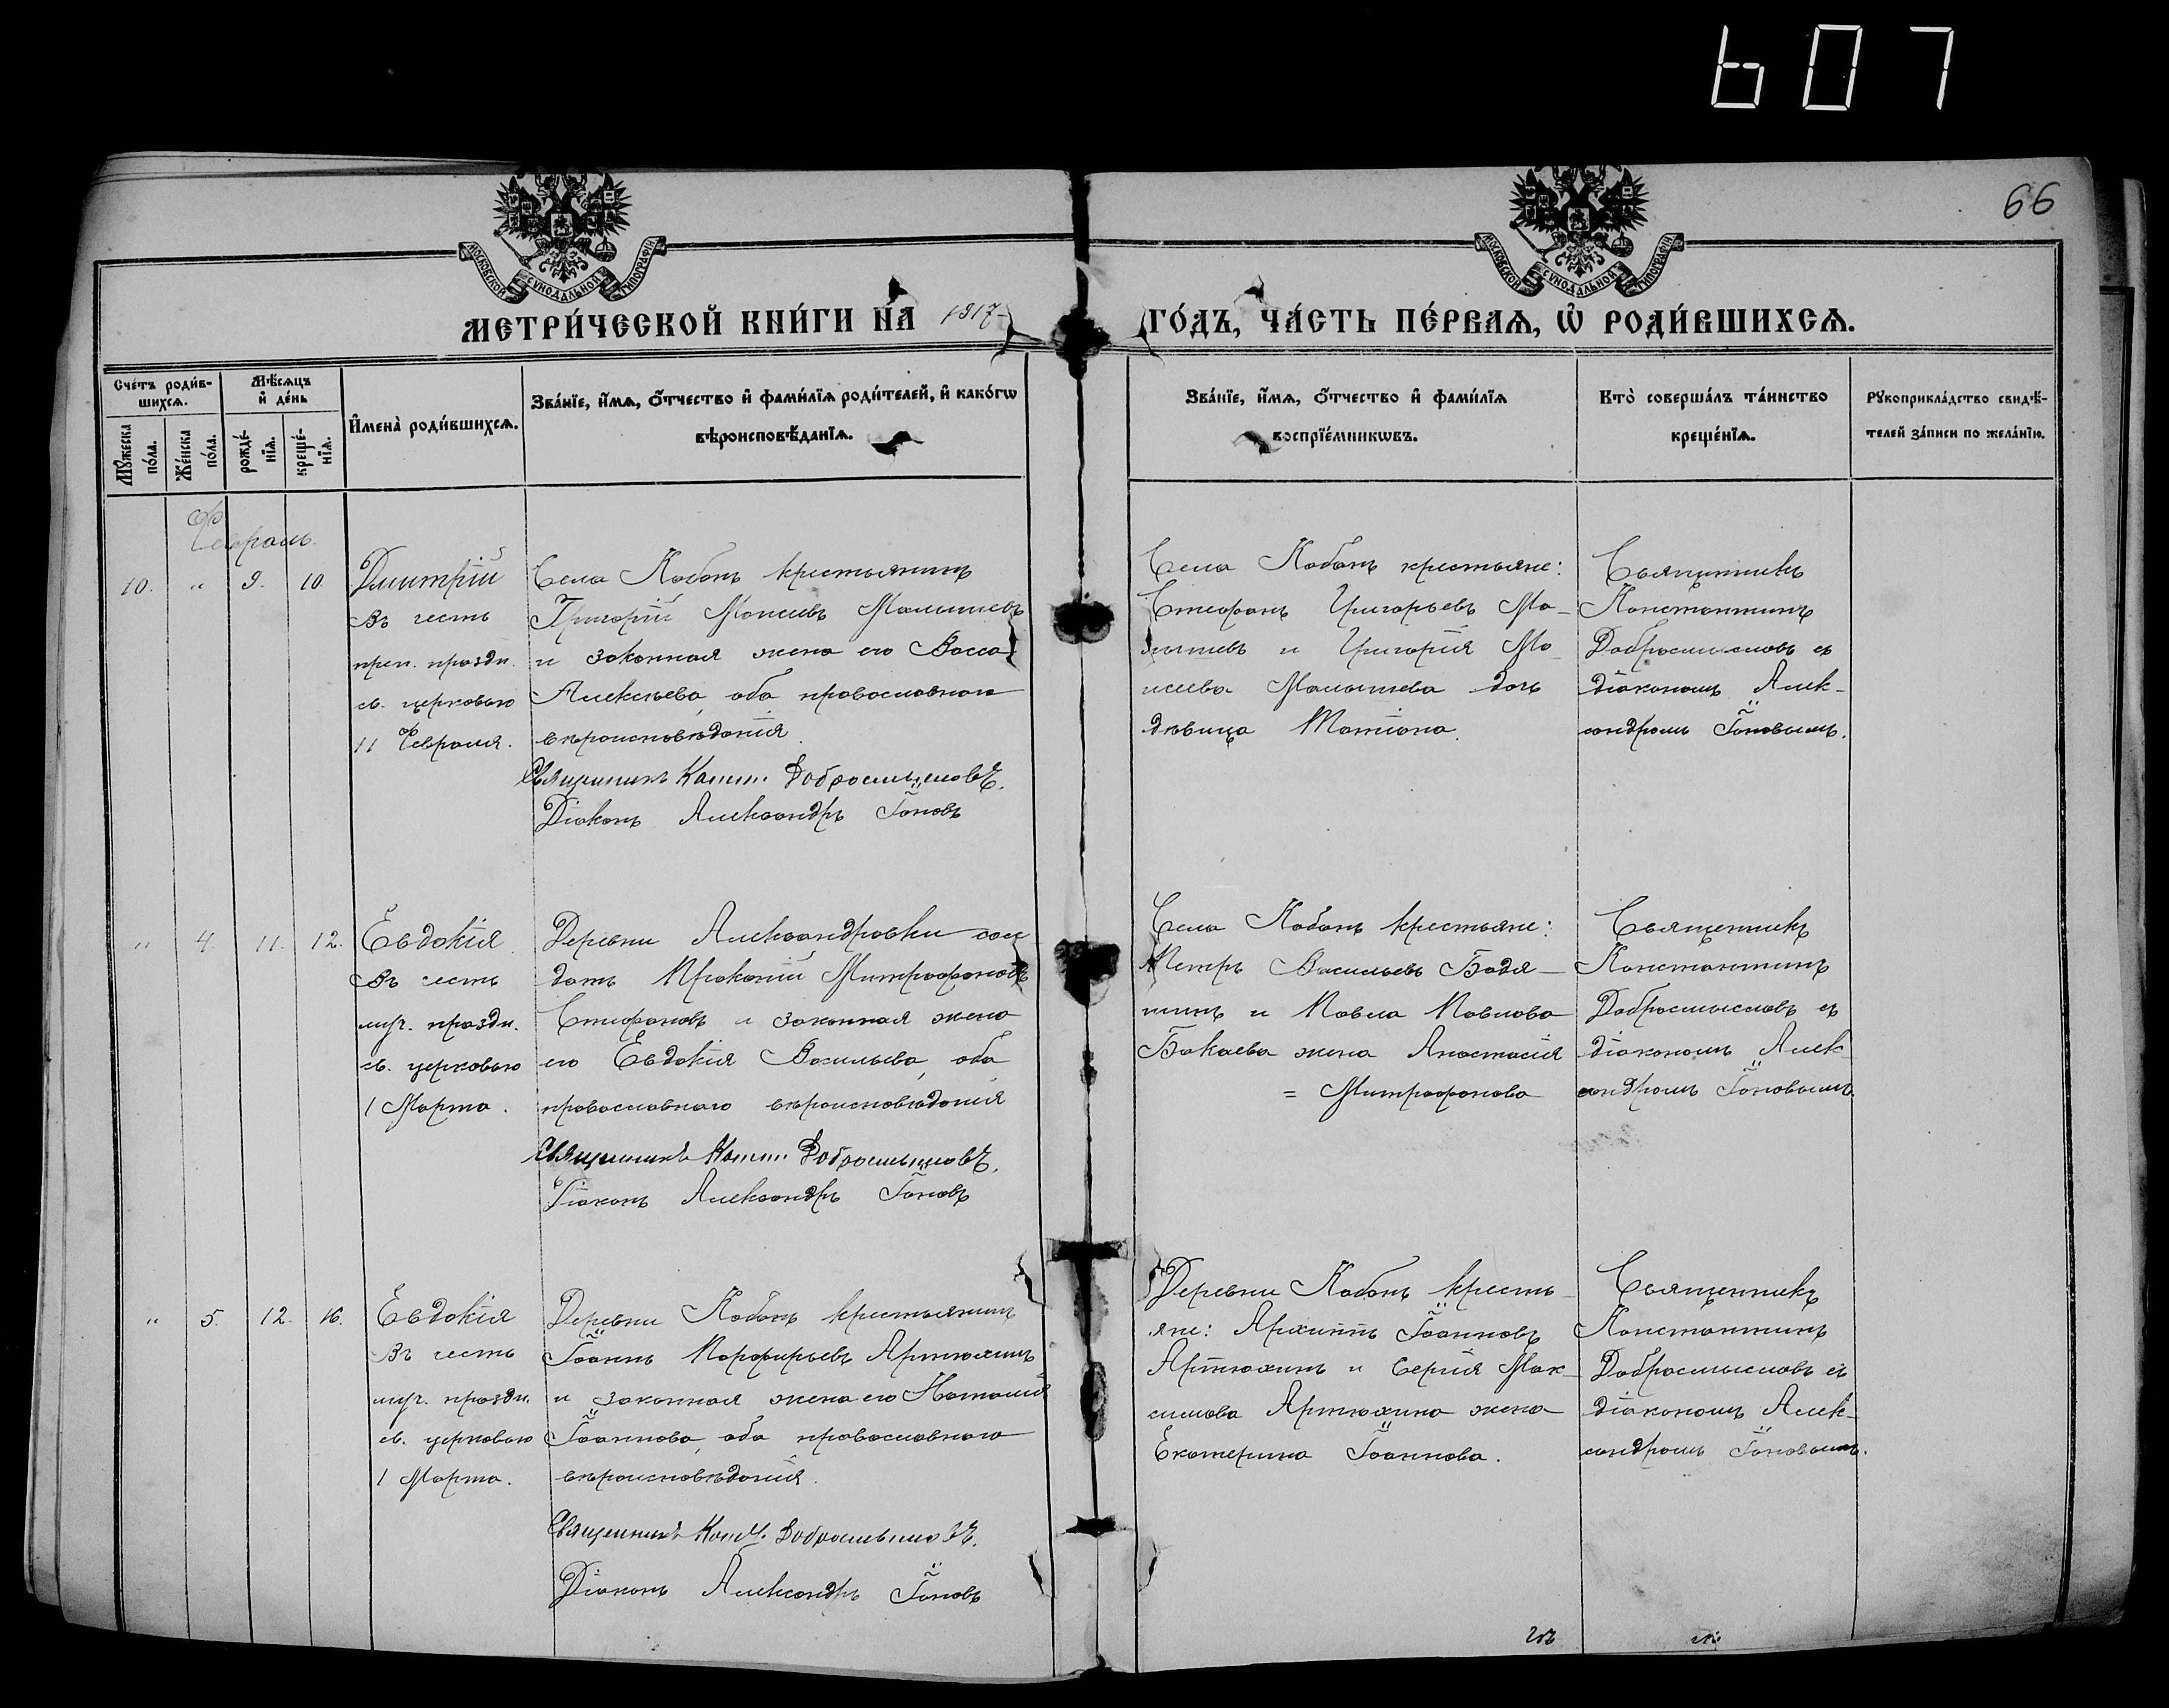 607
66
МОСКОВСКОЙ СѴНОДАЛЬНОЙ ТИПОГРАФІИ
МОСКОВСКОЙ СѴНОДАЛЬНОЙ ТИПОГРАФІИ
МЕТРИ́ЧЕСКОЙ КНИ́ГИ НА̀ 1917 ГО́ДЪ, ЧА́СТЬ ПЕ́РВАѦ, Ѡ҆ РОДИ́ВШИХСѦ.
Сче́тъ роди́в-
шихсѧ.
Мꙋ́жеска
по́ла.
Же́нска
по́ла.
Мѣ́сѧцъ
и҆ де́нь
рожде́-
нїѧ.
креще́-
нїѧ.
И҆мена̀ роди́вшихсѧ.
Зва́нїе, и҆́мѧ, ѻ҆́тчество и҆ фами́лїѧ роди́телей, и҆ како́гѡ
вѣроисповѣ́данїѧ.
Зва́нїе, и҆́мѧ, ѻ҆́тчество и҆ фами́лїѧ
воспрїе́мникѡвъ.
Кто̀ соверша́лъ та́инство
креще́нїѧ.
Рꙋкоприкла́дство свидѣ́-
телей за́писи по жела́нїю.
Февраль.
10. " 9. 10.
Дмитрій
въ честь
преп. праздн.
св. церковью
11 Февраля.
Села Кобань крестьянинъ
Григорій Моисеевъ Малышевъ
и законная жена его Васса
Алексѣева, оба православнаго
вѣроисповѣданія.
Священникъ Конст. Добросмысловъ.
Діаконъ Александръ Іоновъ
Села Кобань крестьяне:
Стефанъ Григорьевъ Ма-
лышевъ и Григорія Мо-
исеева Малышева дочь
дѣвица Татіана.
Священникъ
Константинъ
Добросмысловъ съ
діакономъ Алек-
сандромъ Іоновымъ.
" 4. 11. 12.
Евдокія
въ честь
муч. праздн.
св. церковью
1 Марта.
Деревни Александровки сол
датъ Прокопій Митрофановъ
Стефановъ и законная жена
его Евдокія Васильева, оба
православнаго вѣроисповѣданія
Священникъ Конст. Добросмысловъ.
Діаконъ Александръ Іоновъ
Села Кобань крестьяне:
Петръ Васильевъ Бодя-
шинъ и Павла Павлова
Бакаева жена Анастасія
= Митрофанова
Священникъ
Константинъ
Добросмысловъ съ
діакономъ Алек
сандромъ Іоновымъ.
" 5. 12. 16.
Евдокія
въ честь
муч. праздн.
св. церковью
1 Марта.
Деревни Кобань крестьянинъ
Іоаннъ Порфирьевъ Артюхинъ
и законная жена его Наталія
Іоаннова, оба православнаго
вѣроисповѣданія.
Священникъ Конст. Добросмысловъ.
Діаконъ Александръ Іоновъ
Деревни Кобань кресть-
яне: Архиппъ Іоанновъ
Артюхинъ и Сергія Мак-
симова Артюхина жена
Екатерина Іоаннова.
Священникъ
Константинъ
Добросмысловъ съ
діакономъ Алек-
сандромъ Іоновымъ.